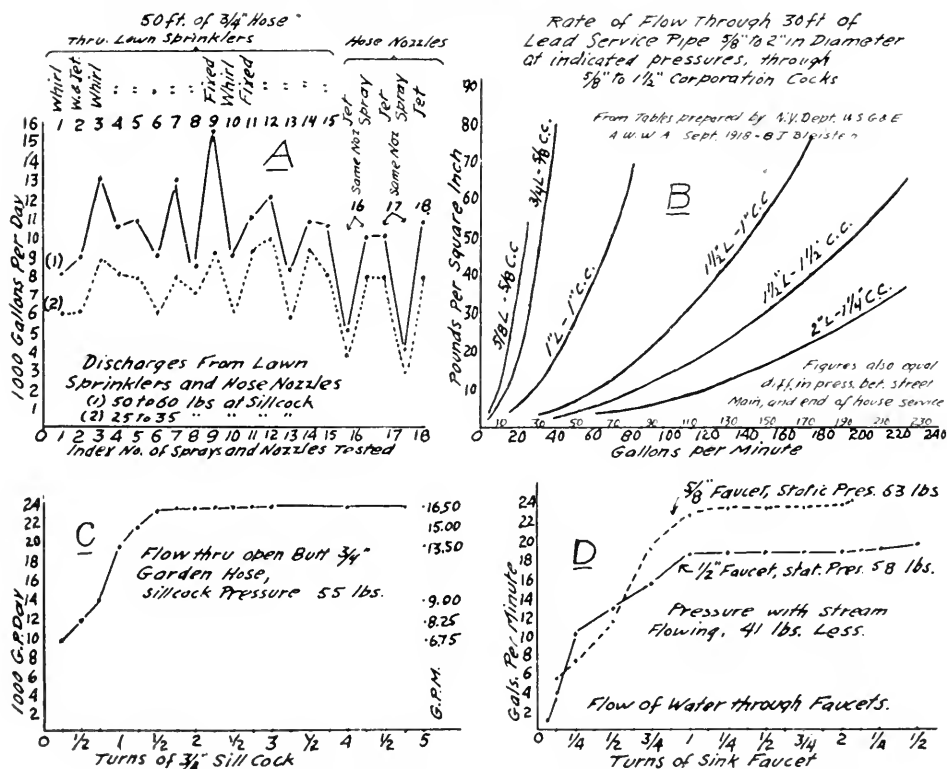 50 ft. of 3/4" Hose
Thru. Lawn Sprinklers
Hose Nozzles
Whirl W. & Jet Whirl " " " " " Fixed Whirl Fixed " " " "
1 2 3 4 5 6 7 8 9 10 11 12 13 14 15
Jet Spray Jet Spray Jet
Same Noz Same Noz
16 17 18
A
1000 Gallons Per Day
16
15
14
13
12
11
10
9
8
7
6
5
4
3
2
1
(1)
(2)
Discharges From Lawn
Sprinklers and Hose Nozzles
(1) 50 to 60 lbs at Sillcock
(2) 25 to 35 " " "
0 1 2 3 4 5 6 7 8 9 10 11 12 13 14 15 16 17 18
Index No. of Sprays and Nozzles Tested
Rate of Flow Through 30 ft of
Lead Service Pipe 5/8" to 2" in Diameter
at indicated pressures, through
5/8" to 1 1/2" Corporation Cocks
From Tables prepared by N.Y. Dept. W S G & E
A.W.W.A Sept. 1918 - B J Bleistein
B
Pounds Per Square Inch
90
80
70
60
50
40
30
20
10
5/8 L - 5/8 C.C
3/4 L - 5/8 C.C.
1" L - 1" C.C.
1 1/2 L - 1" C.C.
1 1/2" L - 1 1/2" C.C.
2" L - 1 1/4" C.C.
Figures also equal
diff. in press. bet. street
Main, and end of house service
10 30 50 70 90 110 130 150 170 190 210 230
0 20 40 60 80 100 120 140 160 180 200 220 240
Gallons per Minute
C
1000 G.P.Day
24
22
20
18
16
14
12
10
8
6
4
2
Flow thru open Butt 3/4"
Garden Hose,
sillcock Pressure 55 lbs.
16.50
15.00
13.50
9.00
8.25
6.75
G.P.M.
0 1/2 1 1/2 2 1/2 3 1/2 4 1/2 5
Turns of 3/4" Sill Cock
D
Gals. Per Minute
24
22
20
18
16
14
12
10
8
6
4
2
5/8" Faucet, Static Pres. 63 lbs
1/2" Faucet, stat. Pres. 58 lbs.
Pressure with stream
Flowing, 41 lbs. Less.
Flow of Water through Faucets.
0 1/4 1/2 3/4 1 1/4 1/2 3/4 2 1/4 1/2
Turns of Sink Faucet